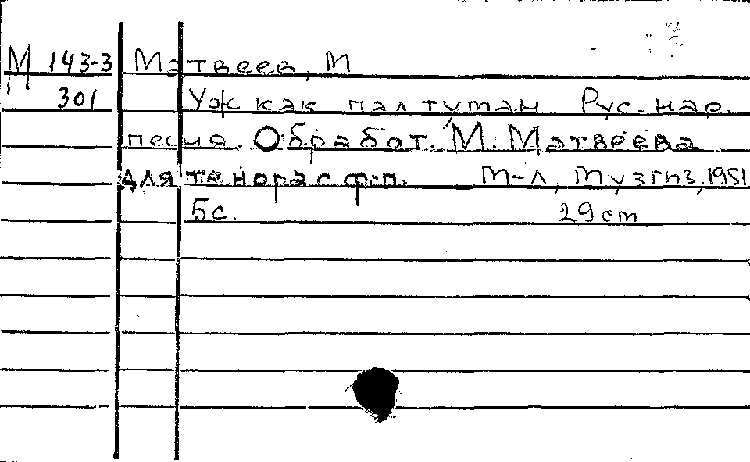 М 143-3 Матвеев, М
301 Уж как пал туман. Рус. нар.
песня. Обработ. М. Матвеева
для тенора с ф-п. М-Л, Музгиз, 1951
5с. 29 cm